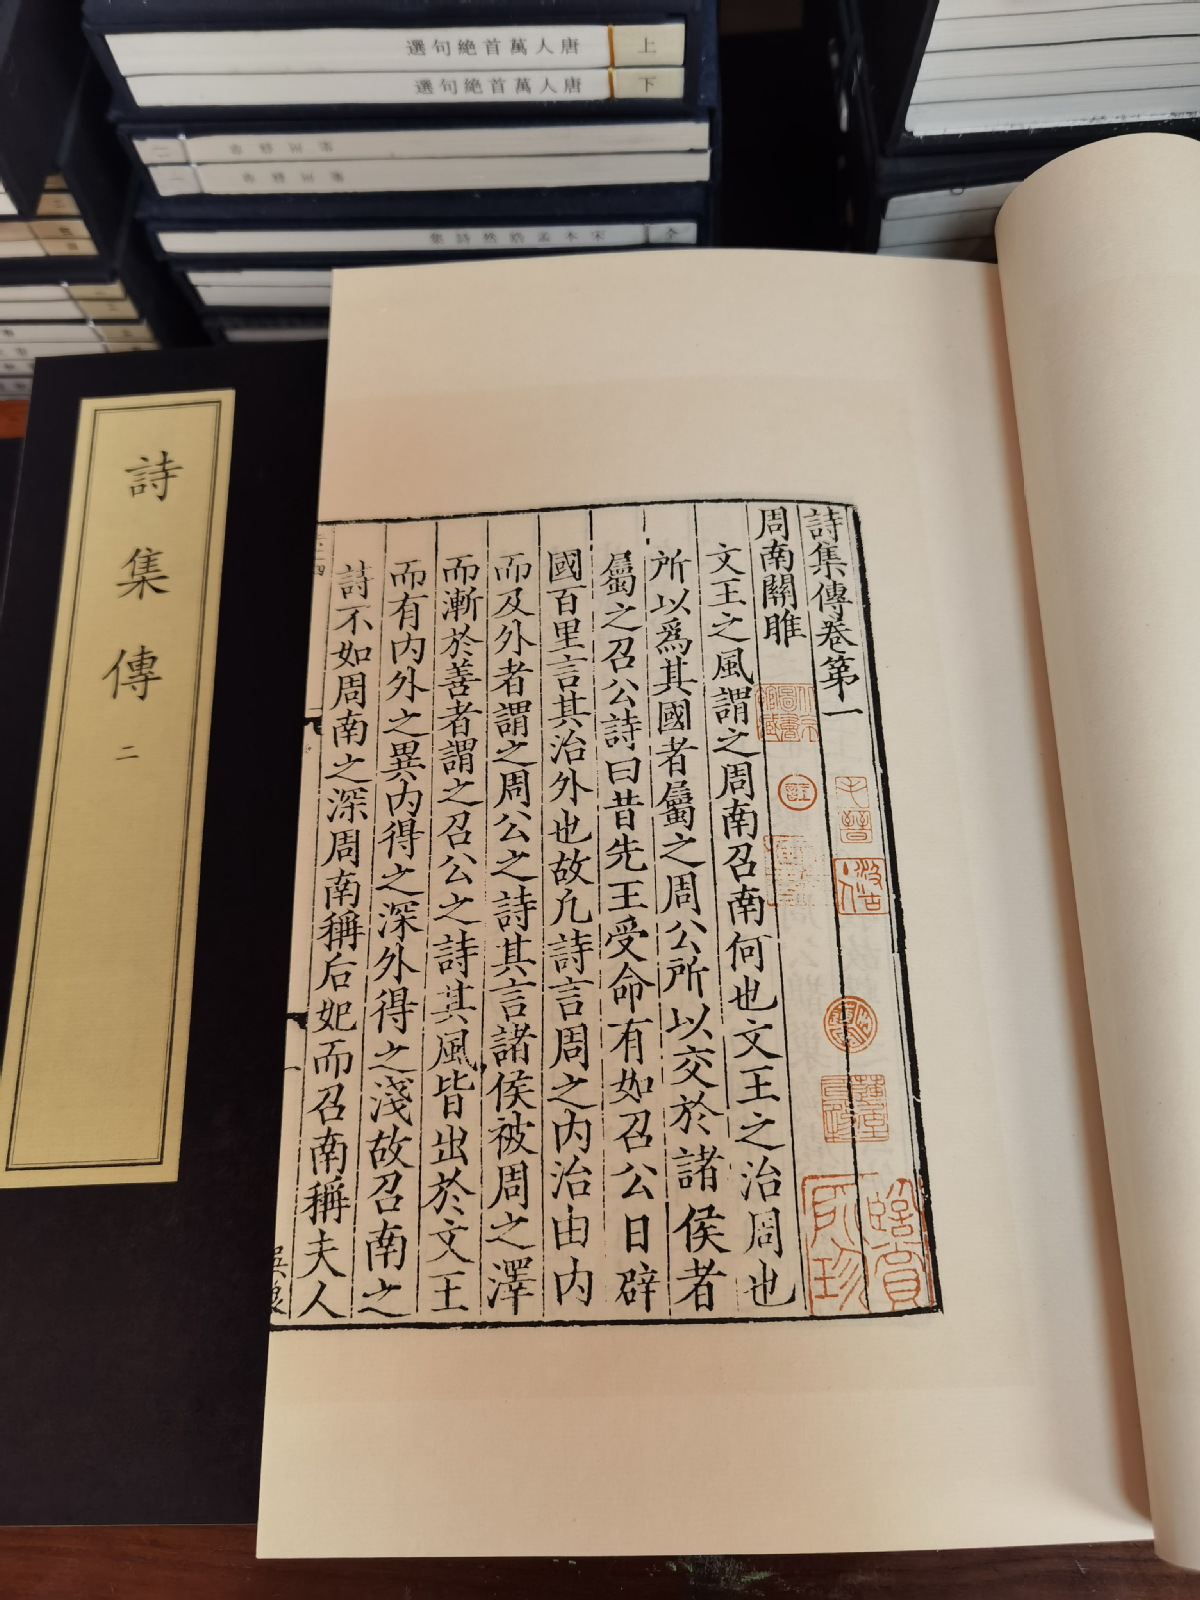 詩集傳卷第一
周南關雎
文王之風謂之周南召南何也文王之治周也
所以爲其國者屬之周公所以交於諸侯者
屬之召公詩曰昔先王受命有如召公日辟
國百里言其治外也故凡詩言周之内治由内
而及外者謂之周公之詩其言諸侯被周之澤
而漸於善者謂之召公之詩其風皆出於文王
而有内外之異内得之深外得之淺故召南之
詩不如周南之深周南稱后妃而召南稱夫人
詩集傳
二
唐人萬首絶句選
上
唐人萬首絶句選
下
宋本孟浩然詩集
全